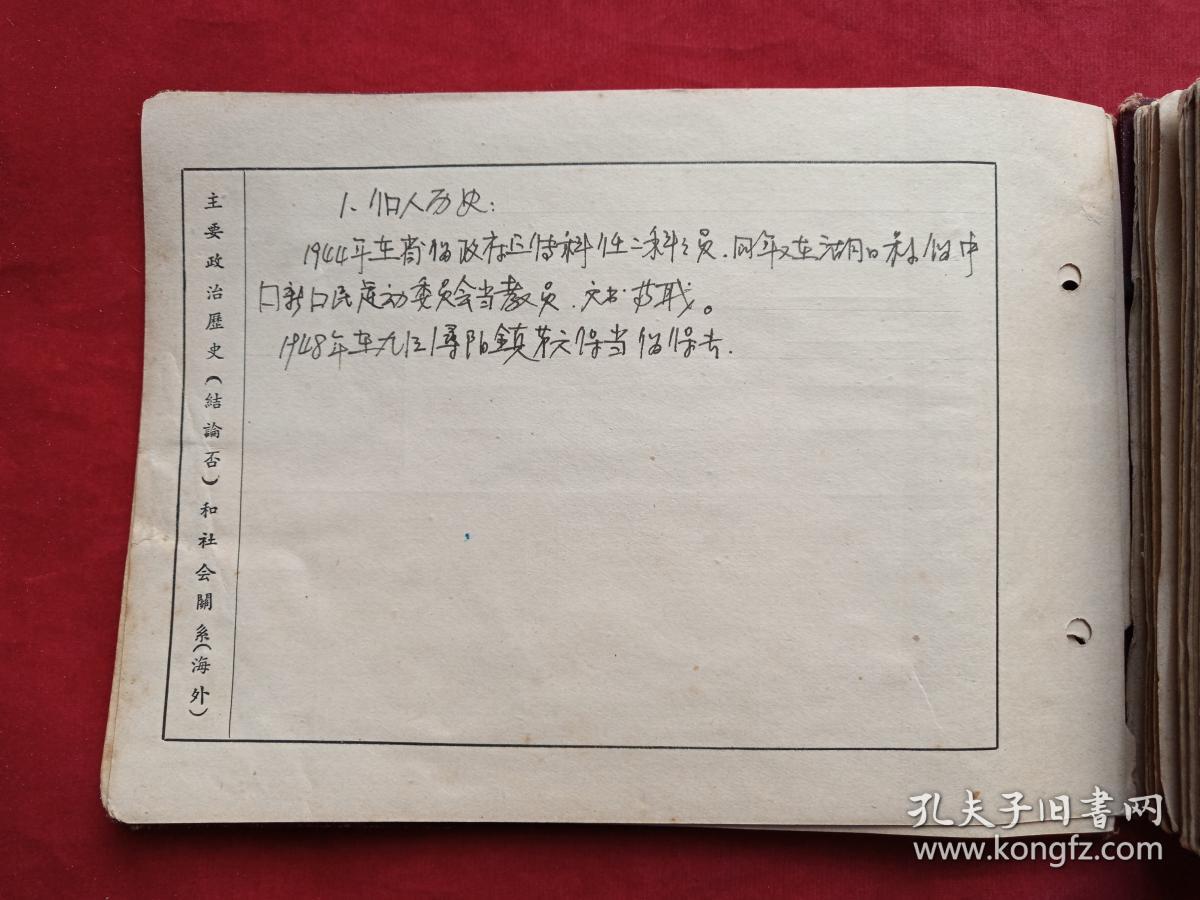 主要政治歷史(結論否)和社会關系(海外)
1、旧人历史:
1944年在 伪政府 科任二科科员.同年又在湖口 伪中
口新口民运动委员会当教员、文书 职。
1948年在九江潯阳鎮第六保当伪保长.
孔夫子旧書网
www.kongfz.com